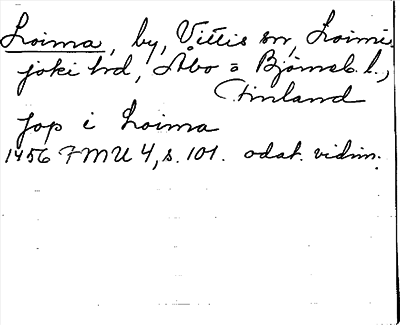 Loima, by, Vittis sn, Loimi-
joki hd, Åbo o Björneb. l.,
Finland
Jop i Loima
1456 FMU 4, s. 101. odat. vidim.